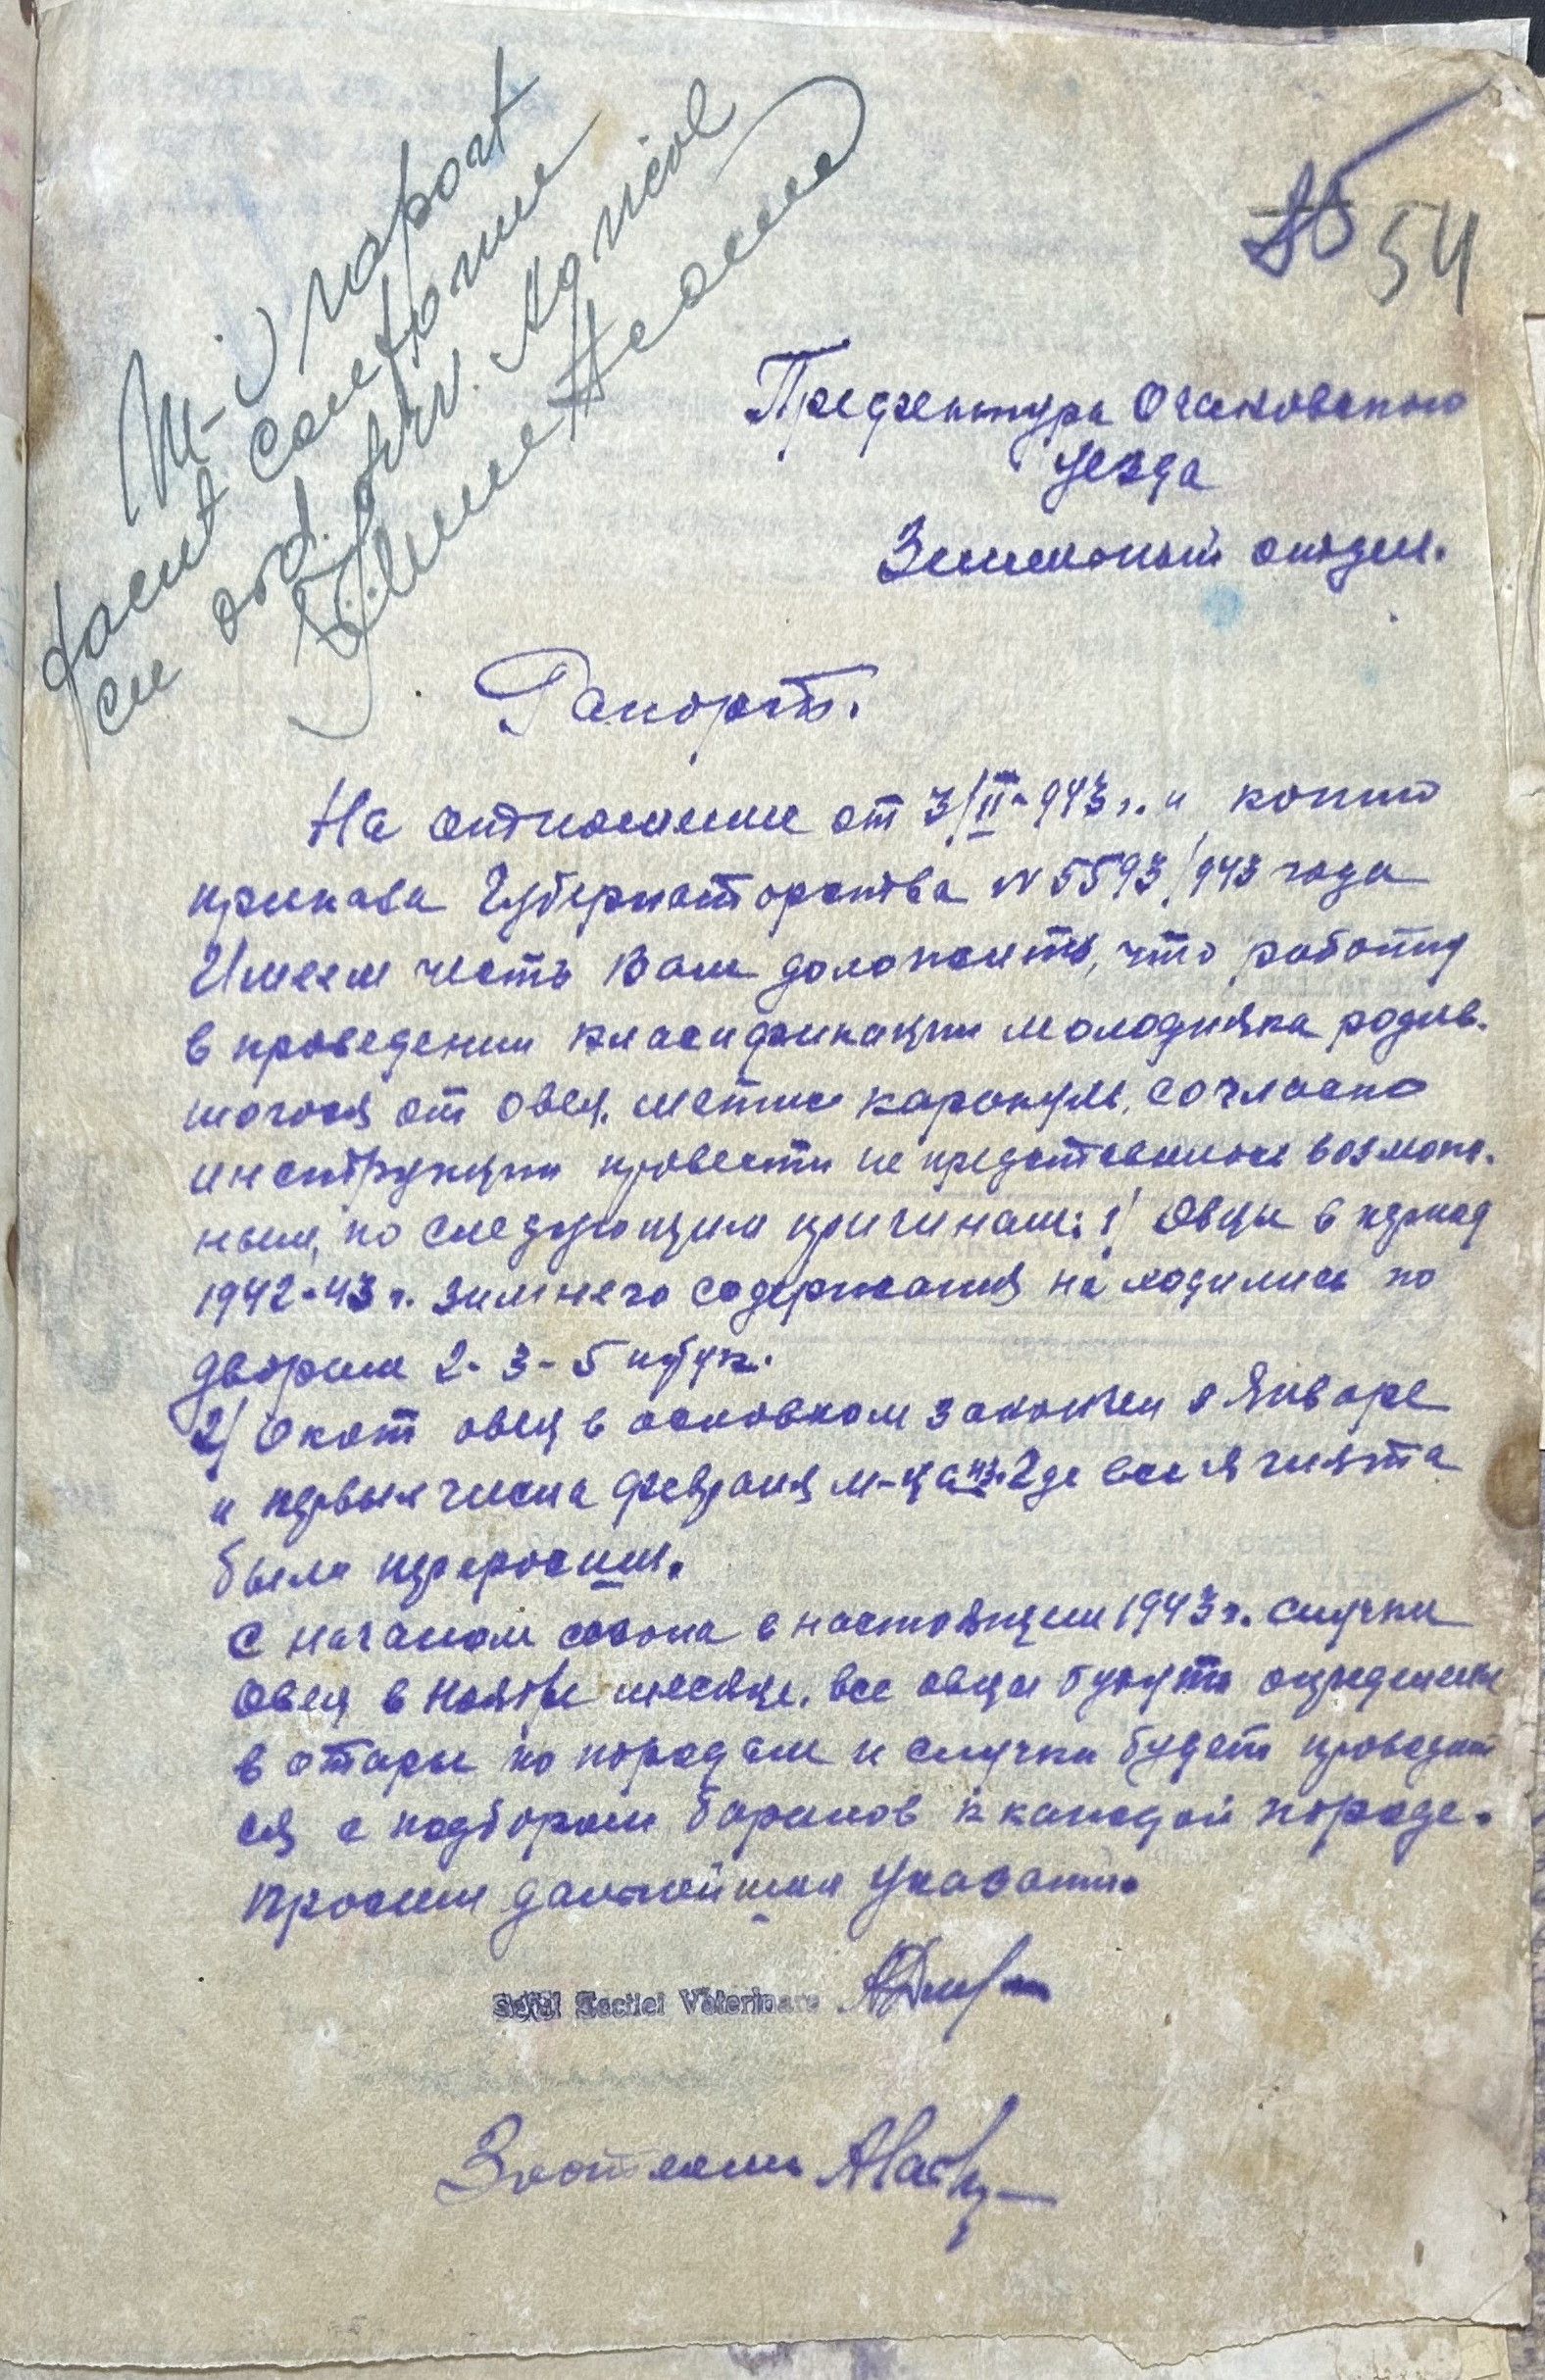 M-i raport
facut conform
cu ord. serv. Agricol
85 54
Префектура Очаковского
Уезда
Земельный отдел.
Рапорт.
На отношение от 3/II-943 г. и копию
приказа Губернаторства N 5593/943 года
Имеем честь Вам доложить, что работу
в проведении класификации молодняка родив.
шогося от овец. метис каракуль, согласно
инструкции провести не представилось возмож.
ным, по следующим причинам: 1/ Овцы в период
1942-43 г. зимнего содержания находились по
дворам 2-3-5 штук.
2/ Окот овец в основном закончен в Январе
и первых числа февраля м-ца 43. Где все ягнята
были переросшие.
С началом сезона в настоящем 1943 г. случки
Овец в Ноябре месяце. все овцы будут определены
в отары по породам и случка будет проводит
ся с подбором баранов к каждой породе.
Просим дальнейших указании.
Seful Sectiei Veterinare
Зоотехник